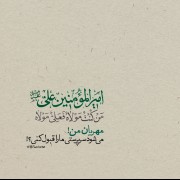 امیرالمؤمنین علی علیه السلام
مَن کُنتُ مَولاهُ فَعَلیٌّ مَولاهُ
مهربان من!
می‌شود سرپرستی ما را قبول کنی؟!